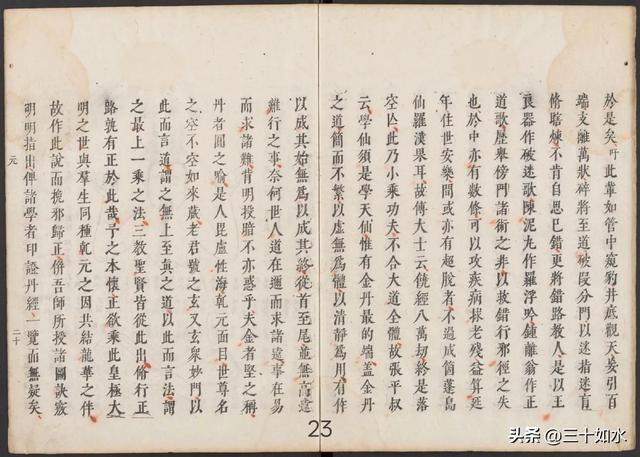 於是矣吁此輩如管中窺豹井底觀天妄引百
端支離萬狀碎將至道破叚分門以迷指迷盲
修瞎煉不肯自思己錯更將錯路教人是以王
良器作破迷歌陳泥丸作羅浮吟鍾離翁作正
道歌歷舉傍門諸術之非以救錯行邪徑之失
也於中亦有數條可以攻疾病扶老殘益算延
年住世安樂間或亦有超脫者不過成箇蓬島
仙羅漢果耳故傅大士云饒經八萬劫終是落
空亾此乃小乘功夫不合大道全體故張平叔
云學仙須是學天仙惟有金丹最的端蓋金丹
之道簡而不繁以虛無為體以清靜為用有作
以成其始無為以成其終從首至尾並無高遠
難行之事奈何世人道在邇而求諸遠事在易
而求諸難背明投暗不亦惑乎夫金者堅之稱
丹者圓之喻是人毘盧性海乾元面目世尊名
之空不空如來藏老君號之玄又玄眾妙門以
此而言道謂之無上至真之道以此而言法謂
之最上一乘之法三教聖賢皆從此出修行正
路孰有正於此哉予之本懷正欲乘此皇極大
明之世與羣生同種乾元之因共結龍華之伴
故作此說而挽邪歸正併吾師所授諸圖訣竅
明明指出俾諸學者印證丹經一覽而無疑矣
元 二十
23
头条 @三十如水